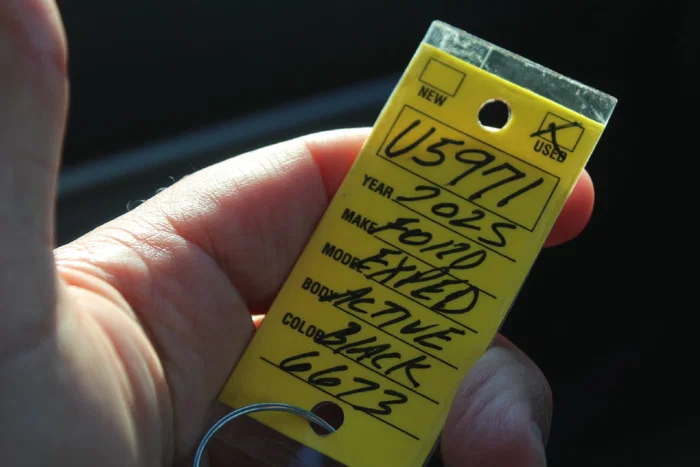 NEW
USED
U5971
YEAR 2025
MAKE FORD
MODEL EXPED
BODY ACTIVE
COLOR BLACK
6673